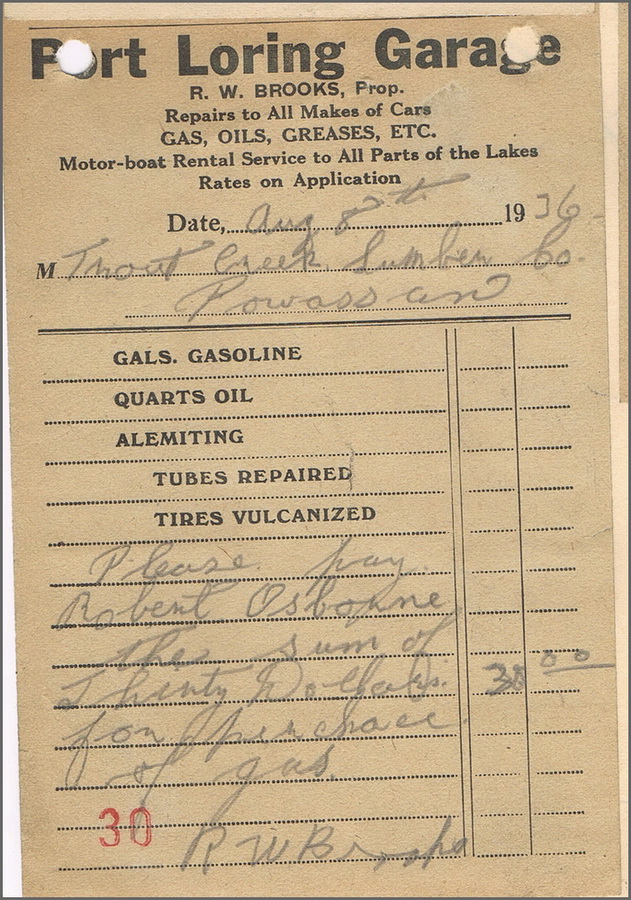 Port Loring Garage
R. W. BROOKS, Prop.
Repairs to All Makes of Cars
GAS, OILS, GREASES, ETC.
Motor-boat Rental Service to All Parts of the Lakes
Rates on Application
Date, Aug 8th 1936
M Trout Creek Lumber Co.
Powassan
GALS. GASOLINE
QUARTS OIL
ALEMITING
TUBES REPAIRED
TIRES VULCANIZED
Please pay
Robert Osborne
the sum of
Thirty Dollars. 30 00
for purchace
of gas.
30
R W Brooks